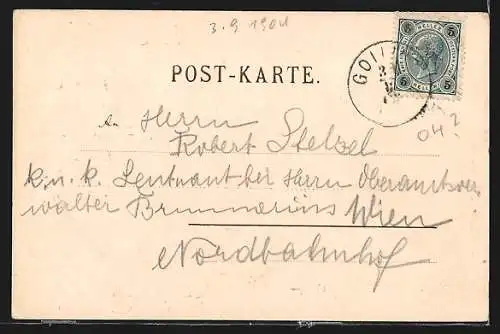 3. 9 1904
POST-KARTE.
GOII
5 HELLER 5
An Herrn
Robert Stelzel
k. u. k. Leutnant bei Herrn Oberamtsver
walter Brunnarius Wien
Nordbahnhof
04?